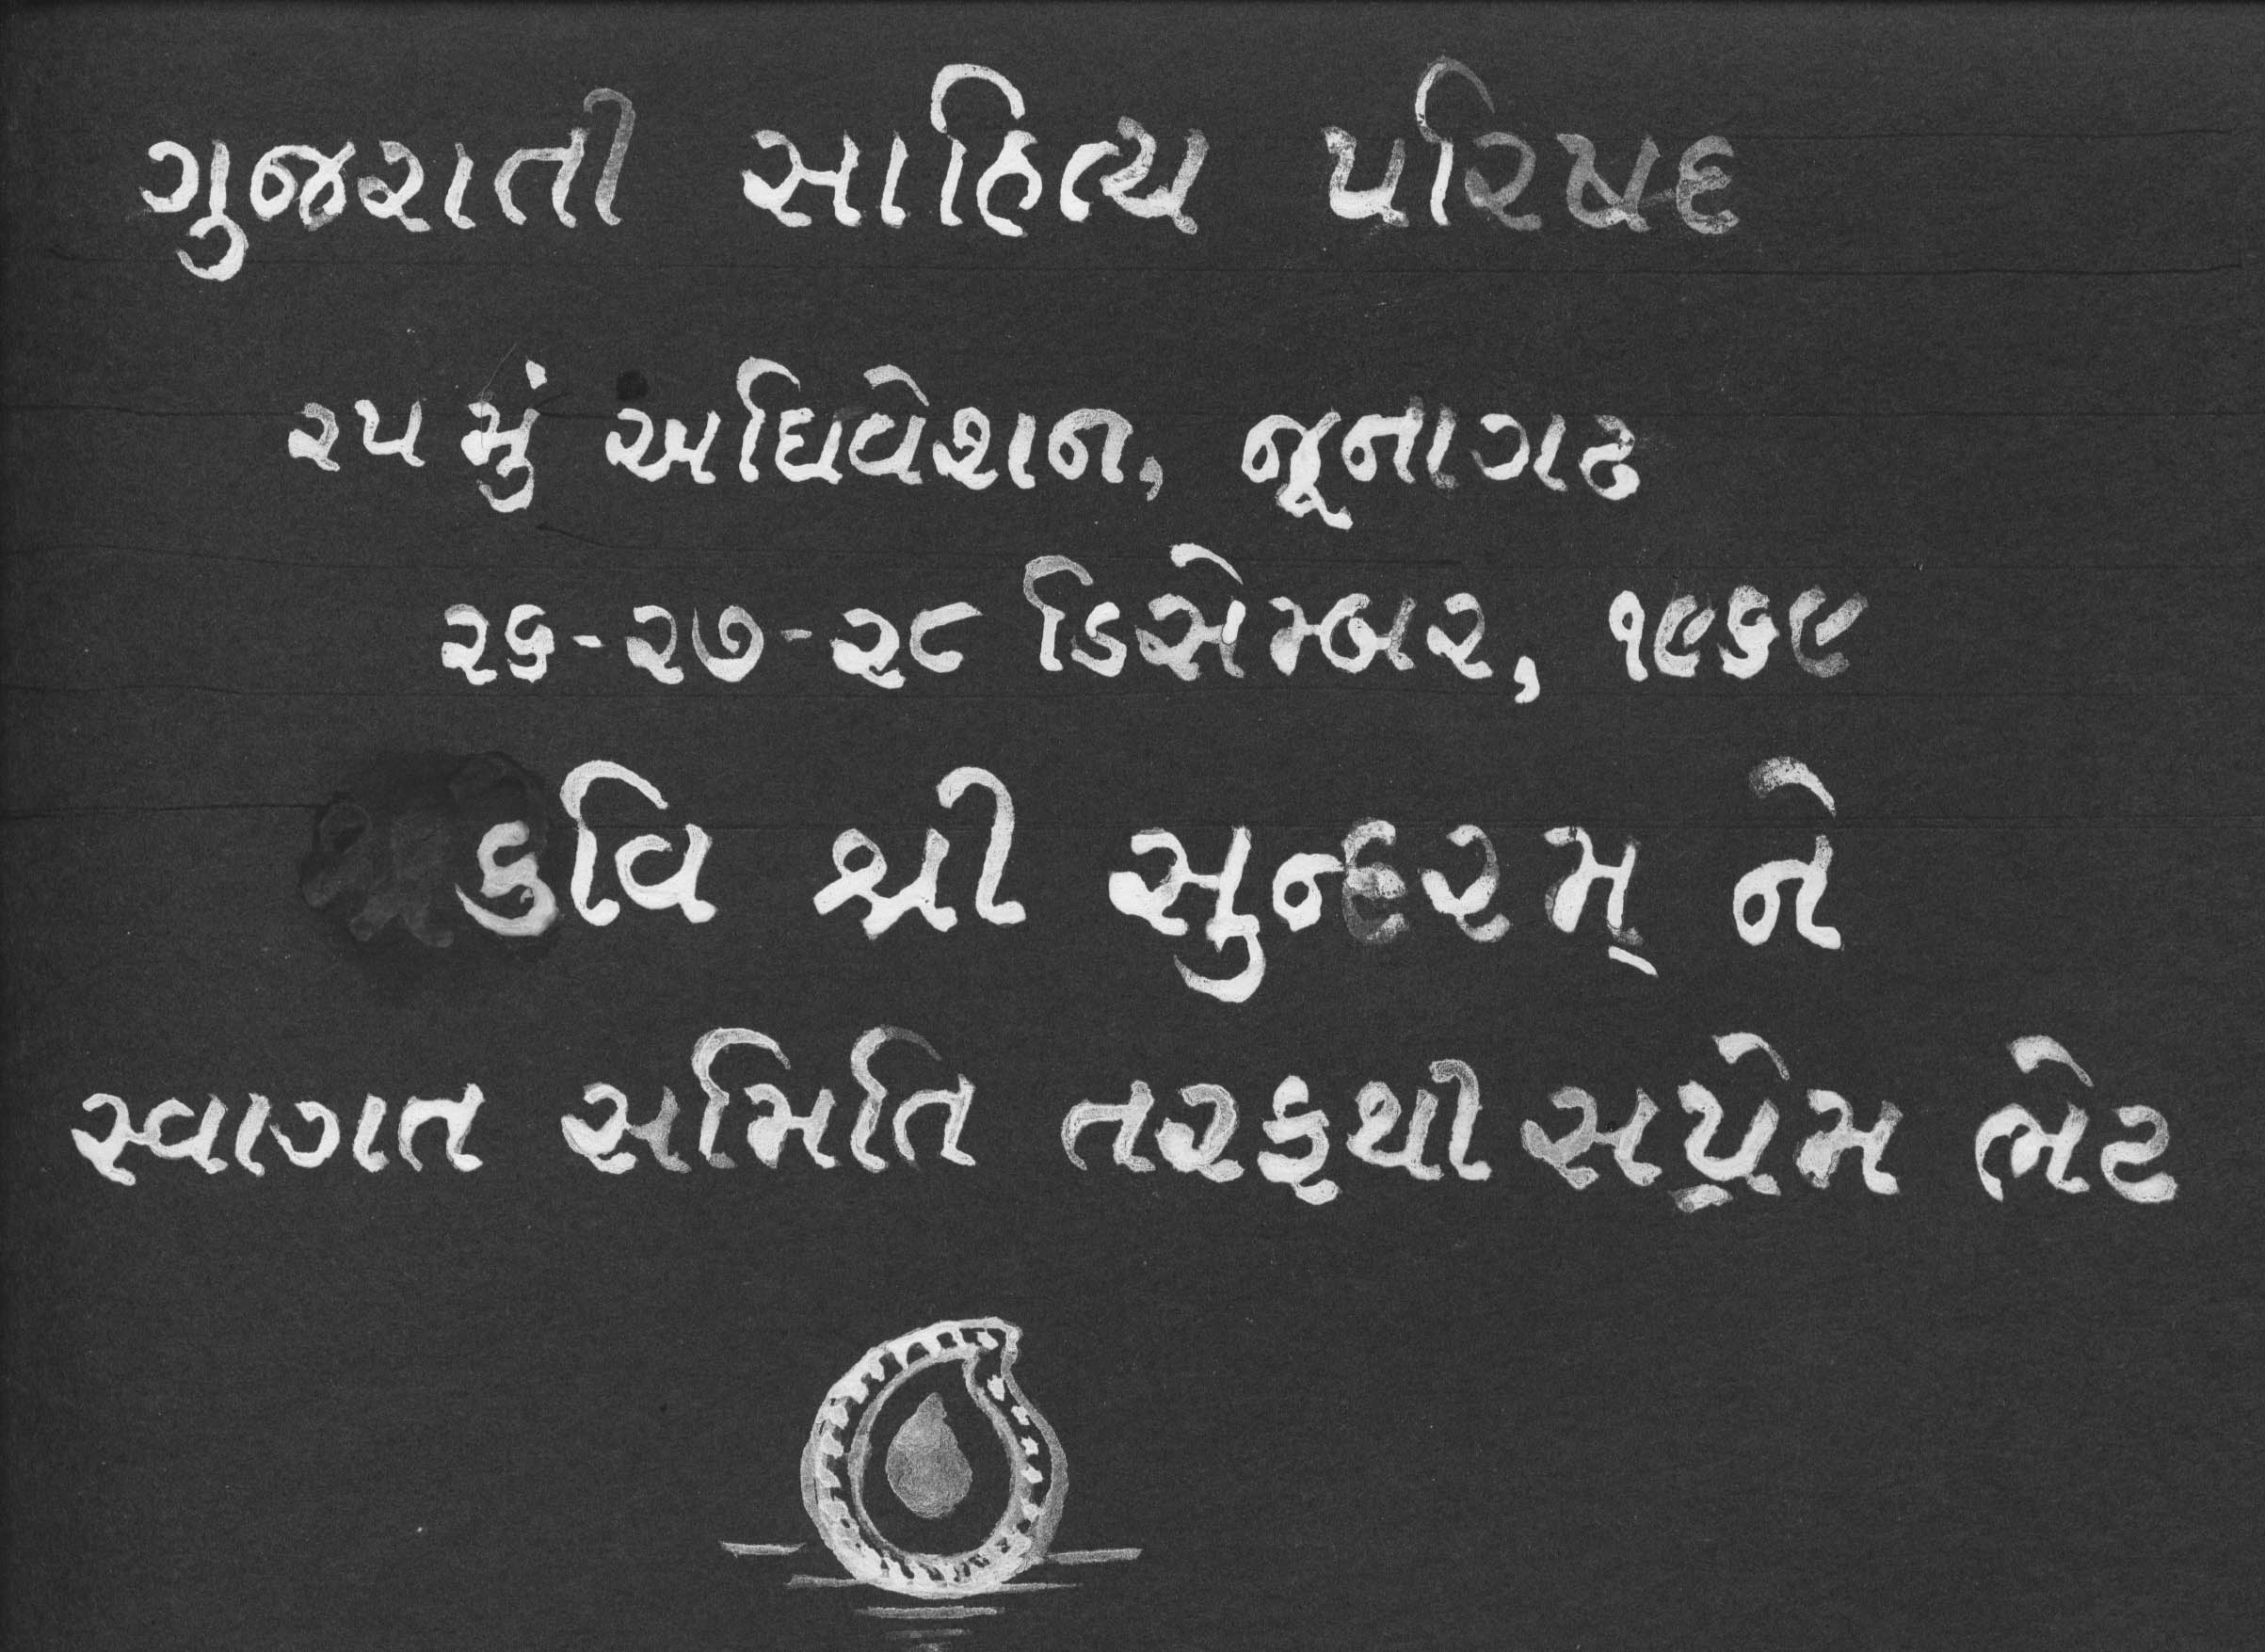 ગુજરાતી સાહિત્ય પરિષદ
૨૫ મું અધિવેશન, જૂનાગઢ
૨૬-૨૭-૨૮ ડિસેમ્બર, ૧૯૬૯
કવિ શ્રી સુન્દરમ્ ને
સ્વાગત સમિતિ તરફથી સપ્રેમ ભેટ